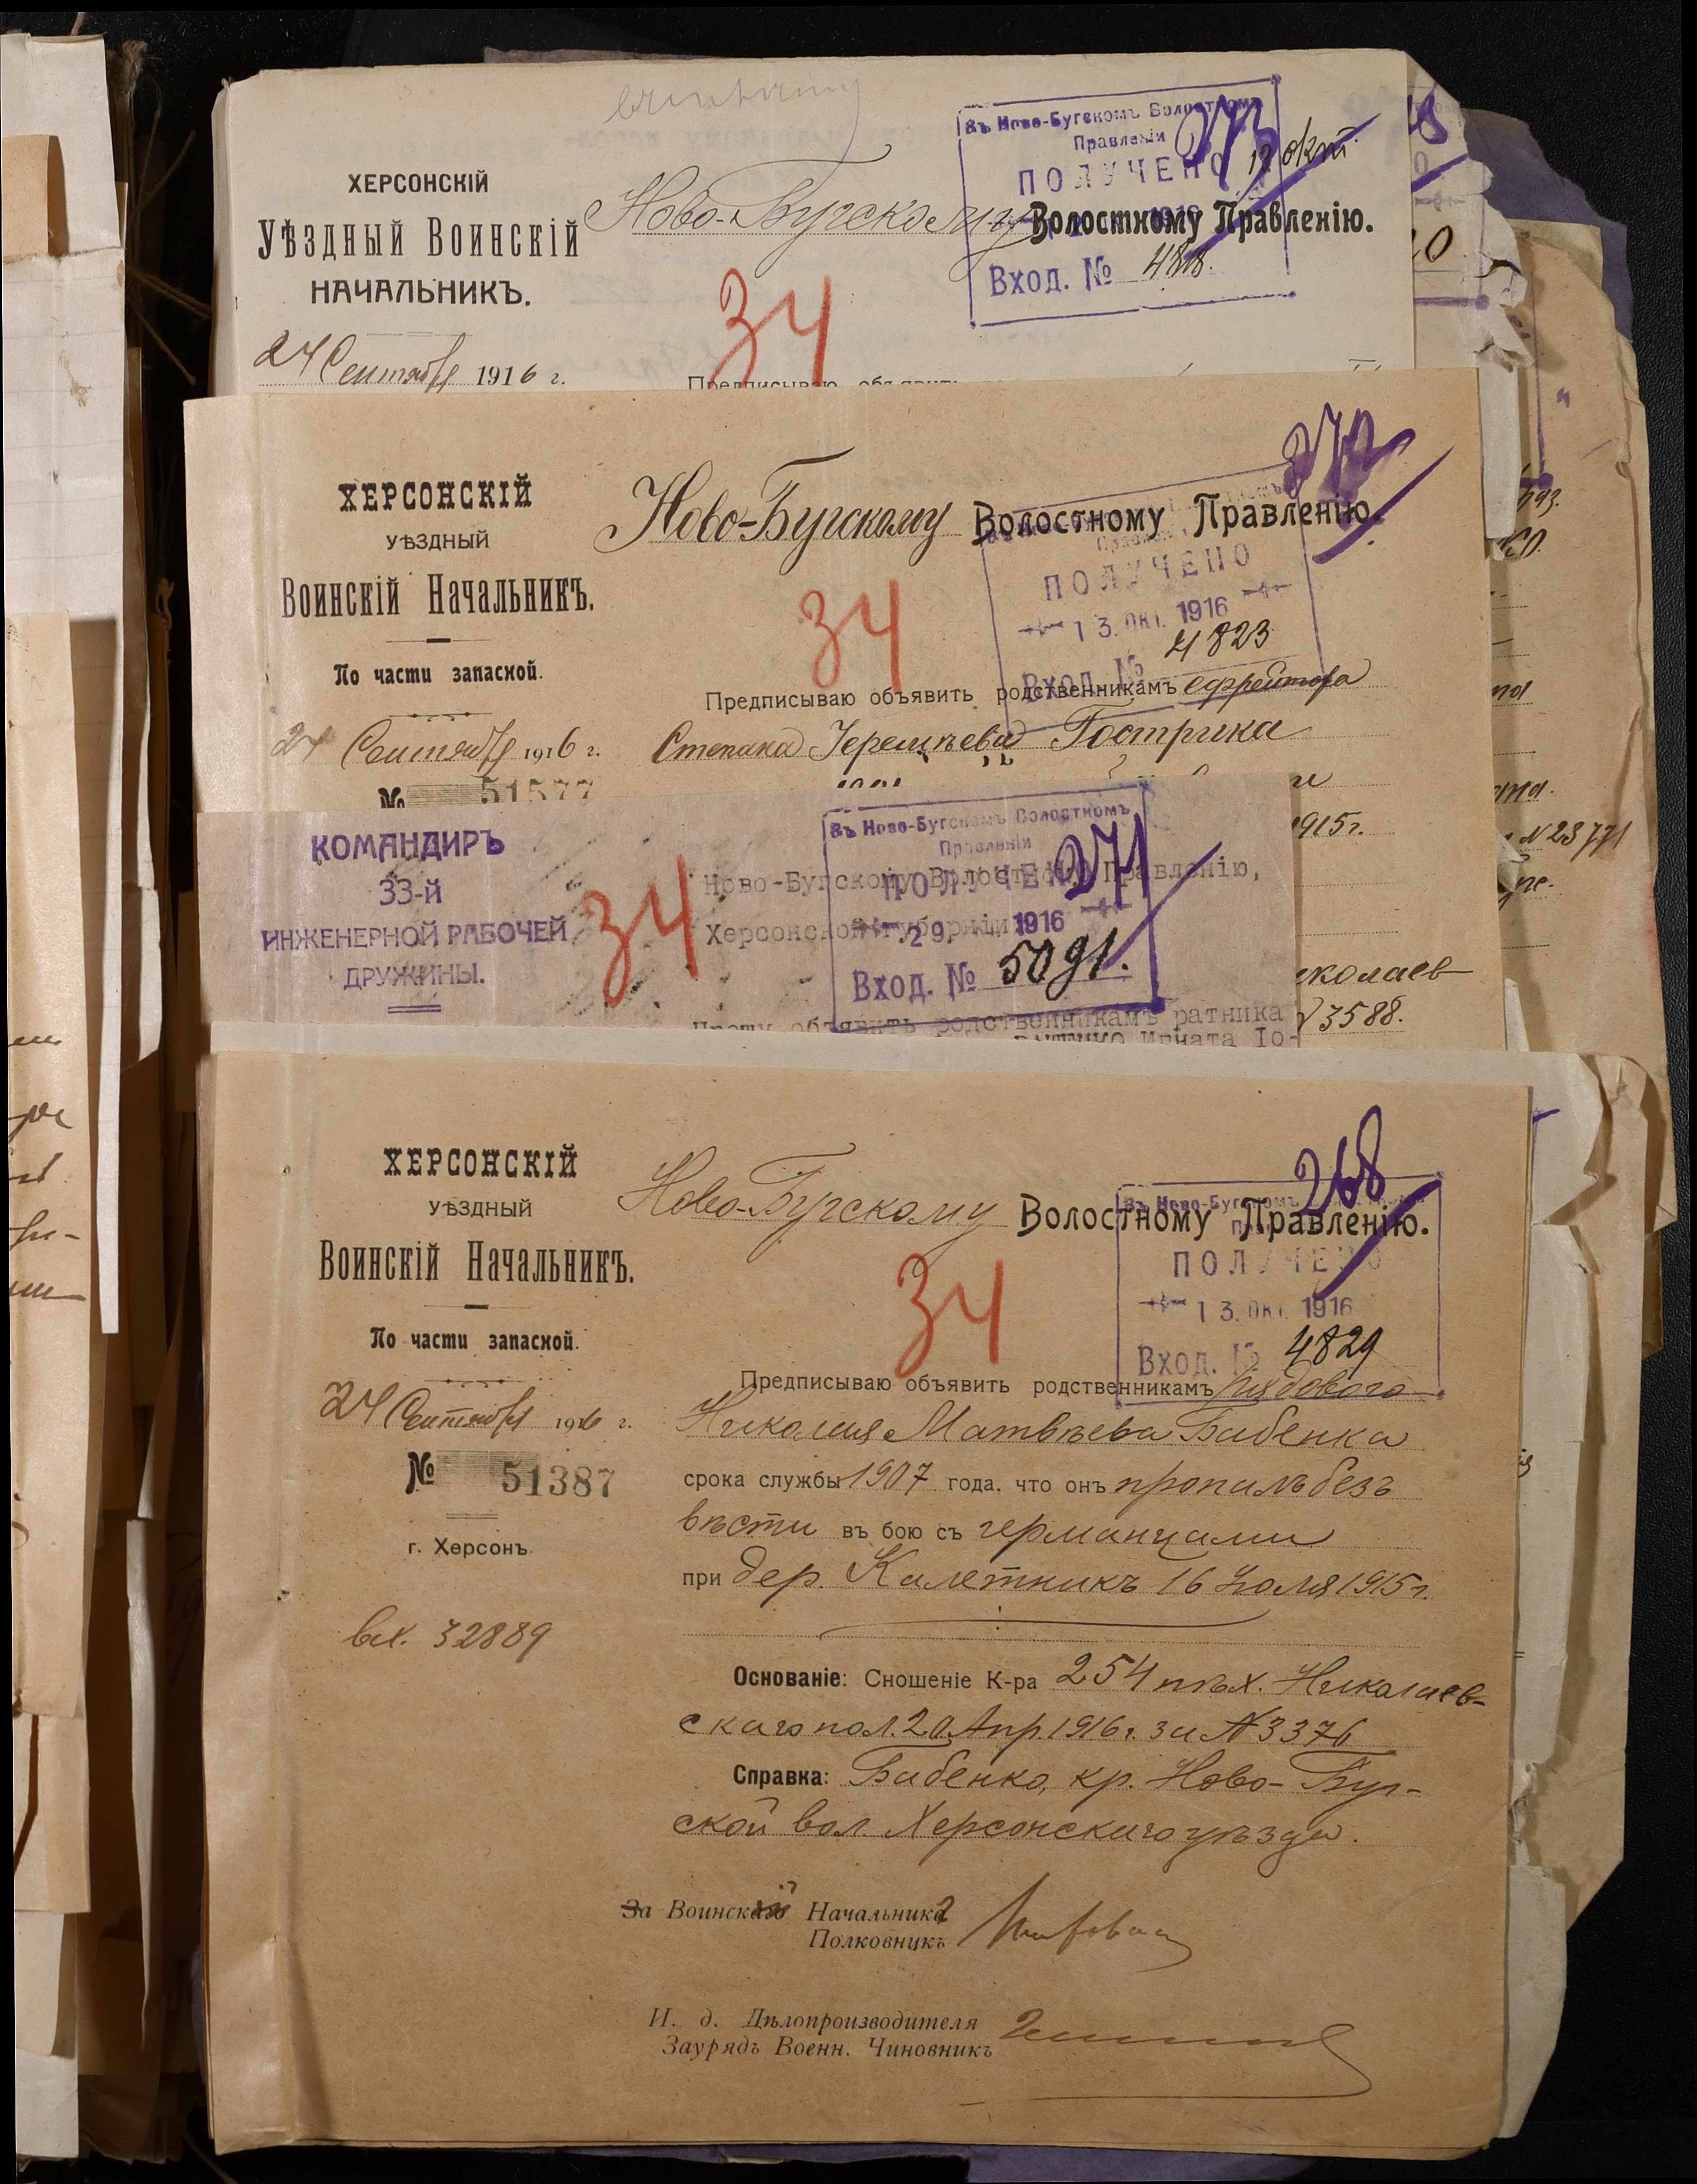 273
Въ Ново-Бугскомъ Волостномъ
Правленіи
ПОЛУЧЕНО
12 окт.
1916
Вход. № 4818.
ХЕРСОНСКІЙ
УѢЗДНЫЙ ВОИНСКІЙ
НАЧАЛЬНИКЪ.
Ново-Бугскому Волостному Правленію.
34
24 Сентября 1916 г.
Предписываю объявить
272
ХЕРСОНСКІЙ
УѢЗДНЫЙ
ВОИНСКІЙ НАЧАЛЬНИКЪ.
По части запасной.
Ново-Бугскому Волостному Правленію.
ПОЛУЧЕНО
13. ОКТ. 1916
Вход. № 4823
34
Предписываю объявить родственникамъ ефрейтора
24 Сентября 1916 г. Степана Терентьева Гострика
№ 51577
1915 г.
николаев
3588.
N 23771
КОМАНДИРЪ
33-й
ИНЖЕНЕРНОЙ РАБОЧЕЙ
ДРУЖИНЫ.
34
Въ Ново-Бугскомъ Волостномъ
Правленіи
ПОЛУЧЕНО
271
29. 1916
Вход. № 5091.
Ново-Бугскому Волостному Правленію,
Херсонской губерніи
Прошу объявить родственникамъ ратника
Игната Іо-
268
ХЕРСОНСКІЙ
УѢЗДНЫЙ
ВОИНСКІЙ НАЧАЛЬНИКЪ.
По части запасной.
Ново-Бугскому Волостному Правленію.
Въ Ново-Бугскомъ
ПОЛУЧЕНО
13. ОКТ. 1916
Вход. № 4829
34
24 Сентября 1916 г.
№ 51387
г. Херсонъ
вх. 32889
Предписываю объявить родственникамъ рядового
Николая Матвѣева Бабенка
срока службы 1907 года, что онъ пропалъ безъ
вѣсти въ бою съ германцами
при дер. Калетникъ 16 Іюля 1915 г.
Основаніе: Сношеніе К-ра 254 пѣх. Николаев-
скаго пол. 20 Апр. 1916 г. за N 3376
Справка: Бабенко, кр. Ново-Буг-
ской вол. Херсонскаго уѣзда.
За Воинскій Начальникъ
Полковникъ
И. д. Дѣлопроизводителя
Заурядъ Военн. Чиновникъ